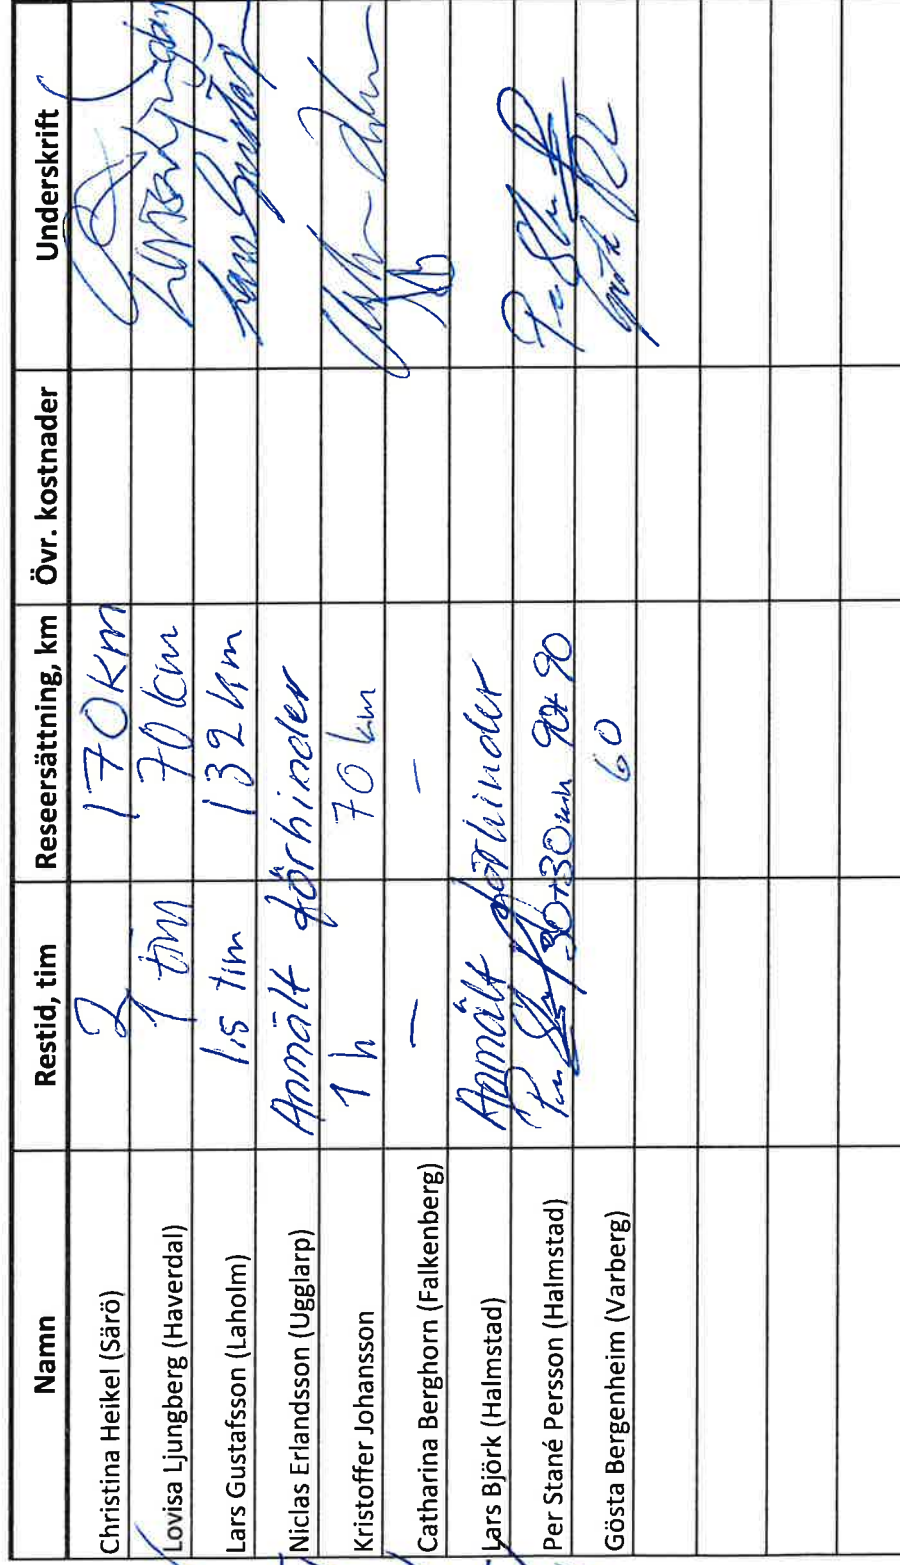 Namn Restid, tim Reseersättning, km Övr. kostnader Underskrift
Christina Heikel (Särö) 2 170 km
Lovisa Ljungberg (Haverdal) 1 tim 70 km
Lars Gustafsson (Laholm) 1,5 tim 132 km Lars Gustafsson
Niclas Erlandsson (Ugglarp) Anmält förhinder
Kristoffer Johansson 1 h 70 km
Catharina Berghorn (Falkenberg) – –
Lars Björk (Halmstad) Anmält förhinder
Per Stané Persson (Halmstad) 30+30 min 90
Gösta Bergenheim (Varberg) 60 Gösta